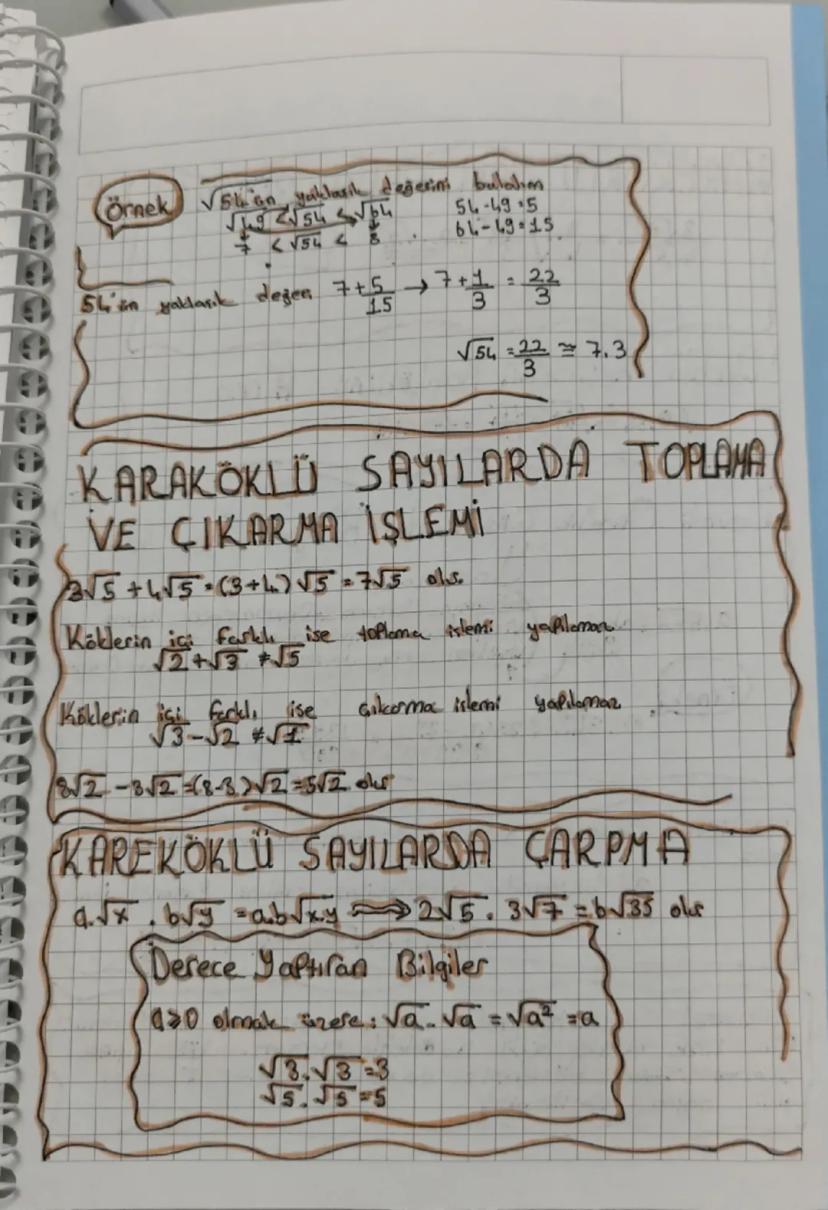 Örnek
√54'ün yaklaşık değerini bulalım
√49 < √54 < √64
54-49=5
7 < √54 < 8
64-49=15
54'ün yaklaşık değeri 7+5/15 → 7+1/3 = 22/3
√54 = 22/3 ≅ 7.3
KARAKÖKLÜ SAYILARDA TOPLAMA
VE ÇIKARMA İŞLEMİ
3√5 + 4√5 = (3+4) √5 = 7√5 olur.
Köklerin içi farklı ise toplama işlemi yapılamaz
√2+√3 ≠√5
Köklerin içi farklı ise çıkarma işlemi yapılamaz
√3-√2 ≠√1
8√2 -3√2=(8-3)√2=5√2 olur
KAREKÖKLÜ SAYILARDA ÇARPMA
a.√x . b√y = a.b√x.y ⟹ 2√5 . 3√7 = 6√35 olur
Derece Yaptıran Bilgiler
a≥0 olmak üzere: √a . √a = √a² = a
√3.√3=3
√5.√5=5